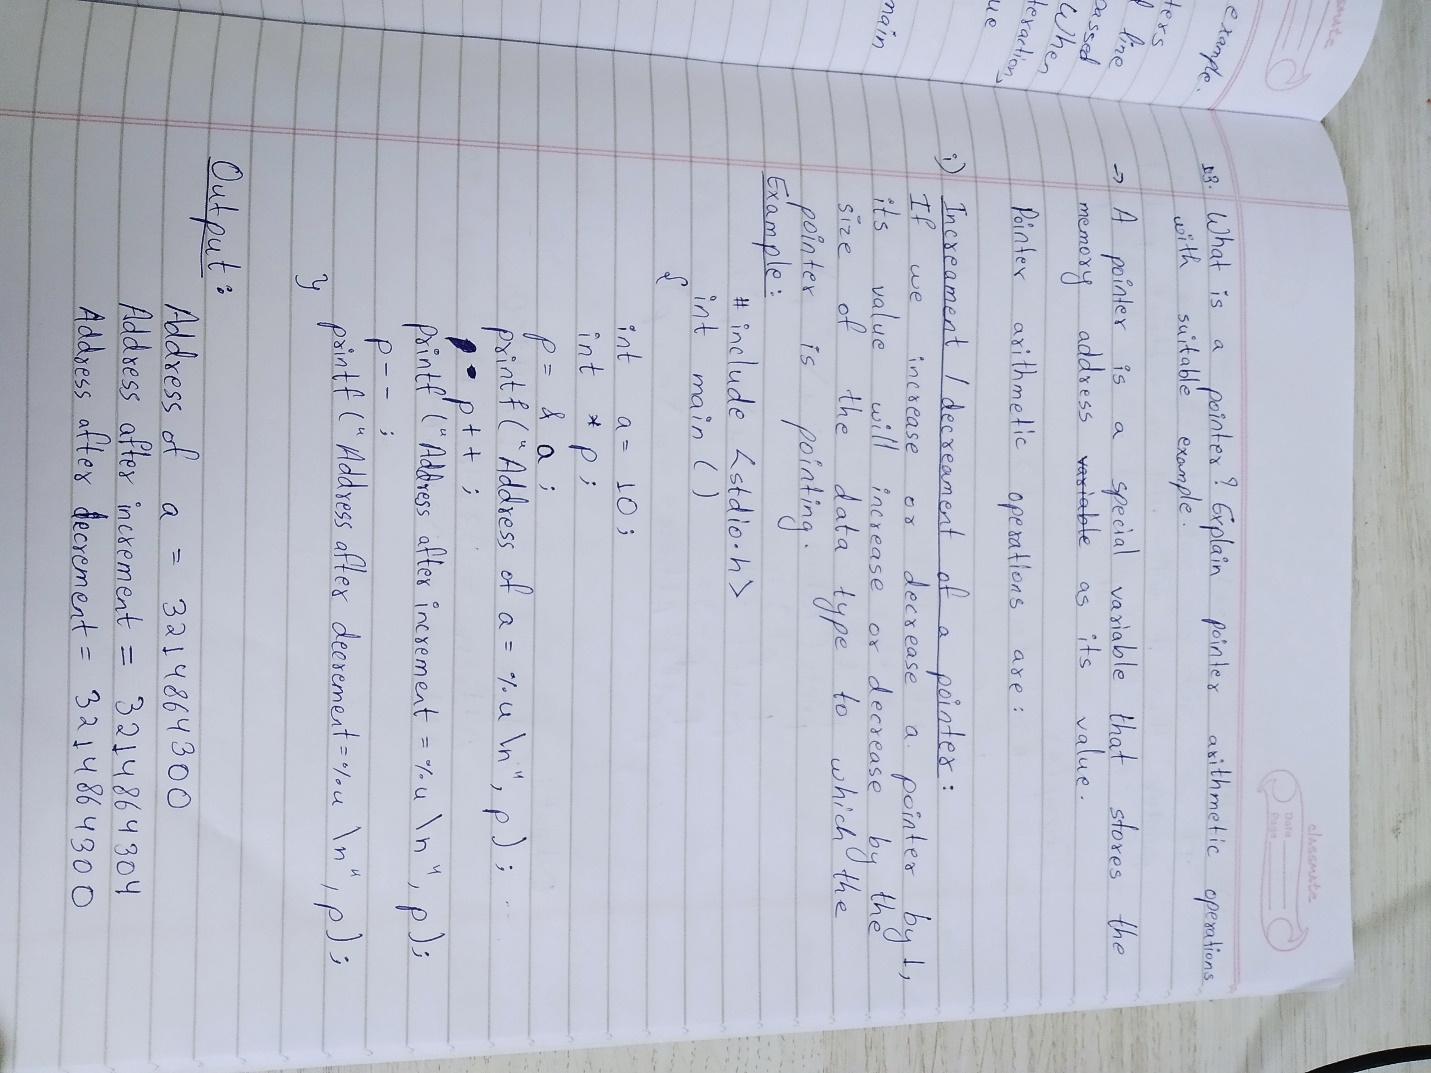 example.
ters
line
passed
When
teraction,
ue
main
classmate
Date
Page
What is a pointer? Explain pointer arithmetic operations
with suitable example.
→ A pointer is a special variable that stores the
memory address variable as its value.
Pointer arithmetic operations are:
i) Increament / decreament of a pointer:
If we increase or decrease a pointer by 1,
its value will increase or decrease by the
size of the data type to which the
pointer is pointing.
Example:
# include <stdio.h>
int main ()
{
int a = 10;
int * p;
p = & a;
printf ("Address of a = %u \n", p);
p++;
printf ("Address after increment = %u \n", p);
p--;
printf ("Address after decrement = %u \n", p);
}
Output:
Address of a = 3214864300
Address after increment = 3214864304
Address after decrement = 3214864300